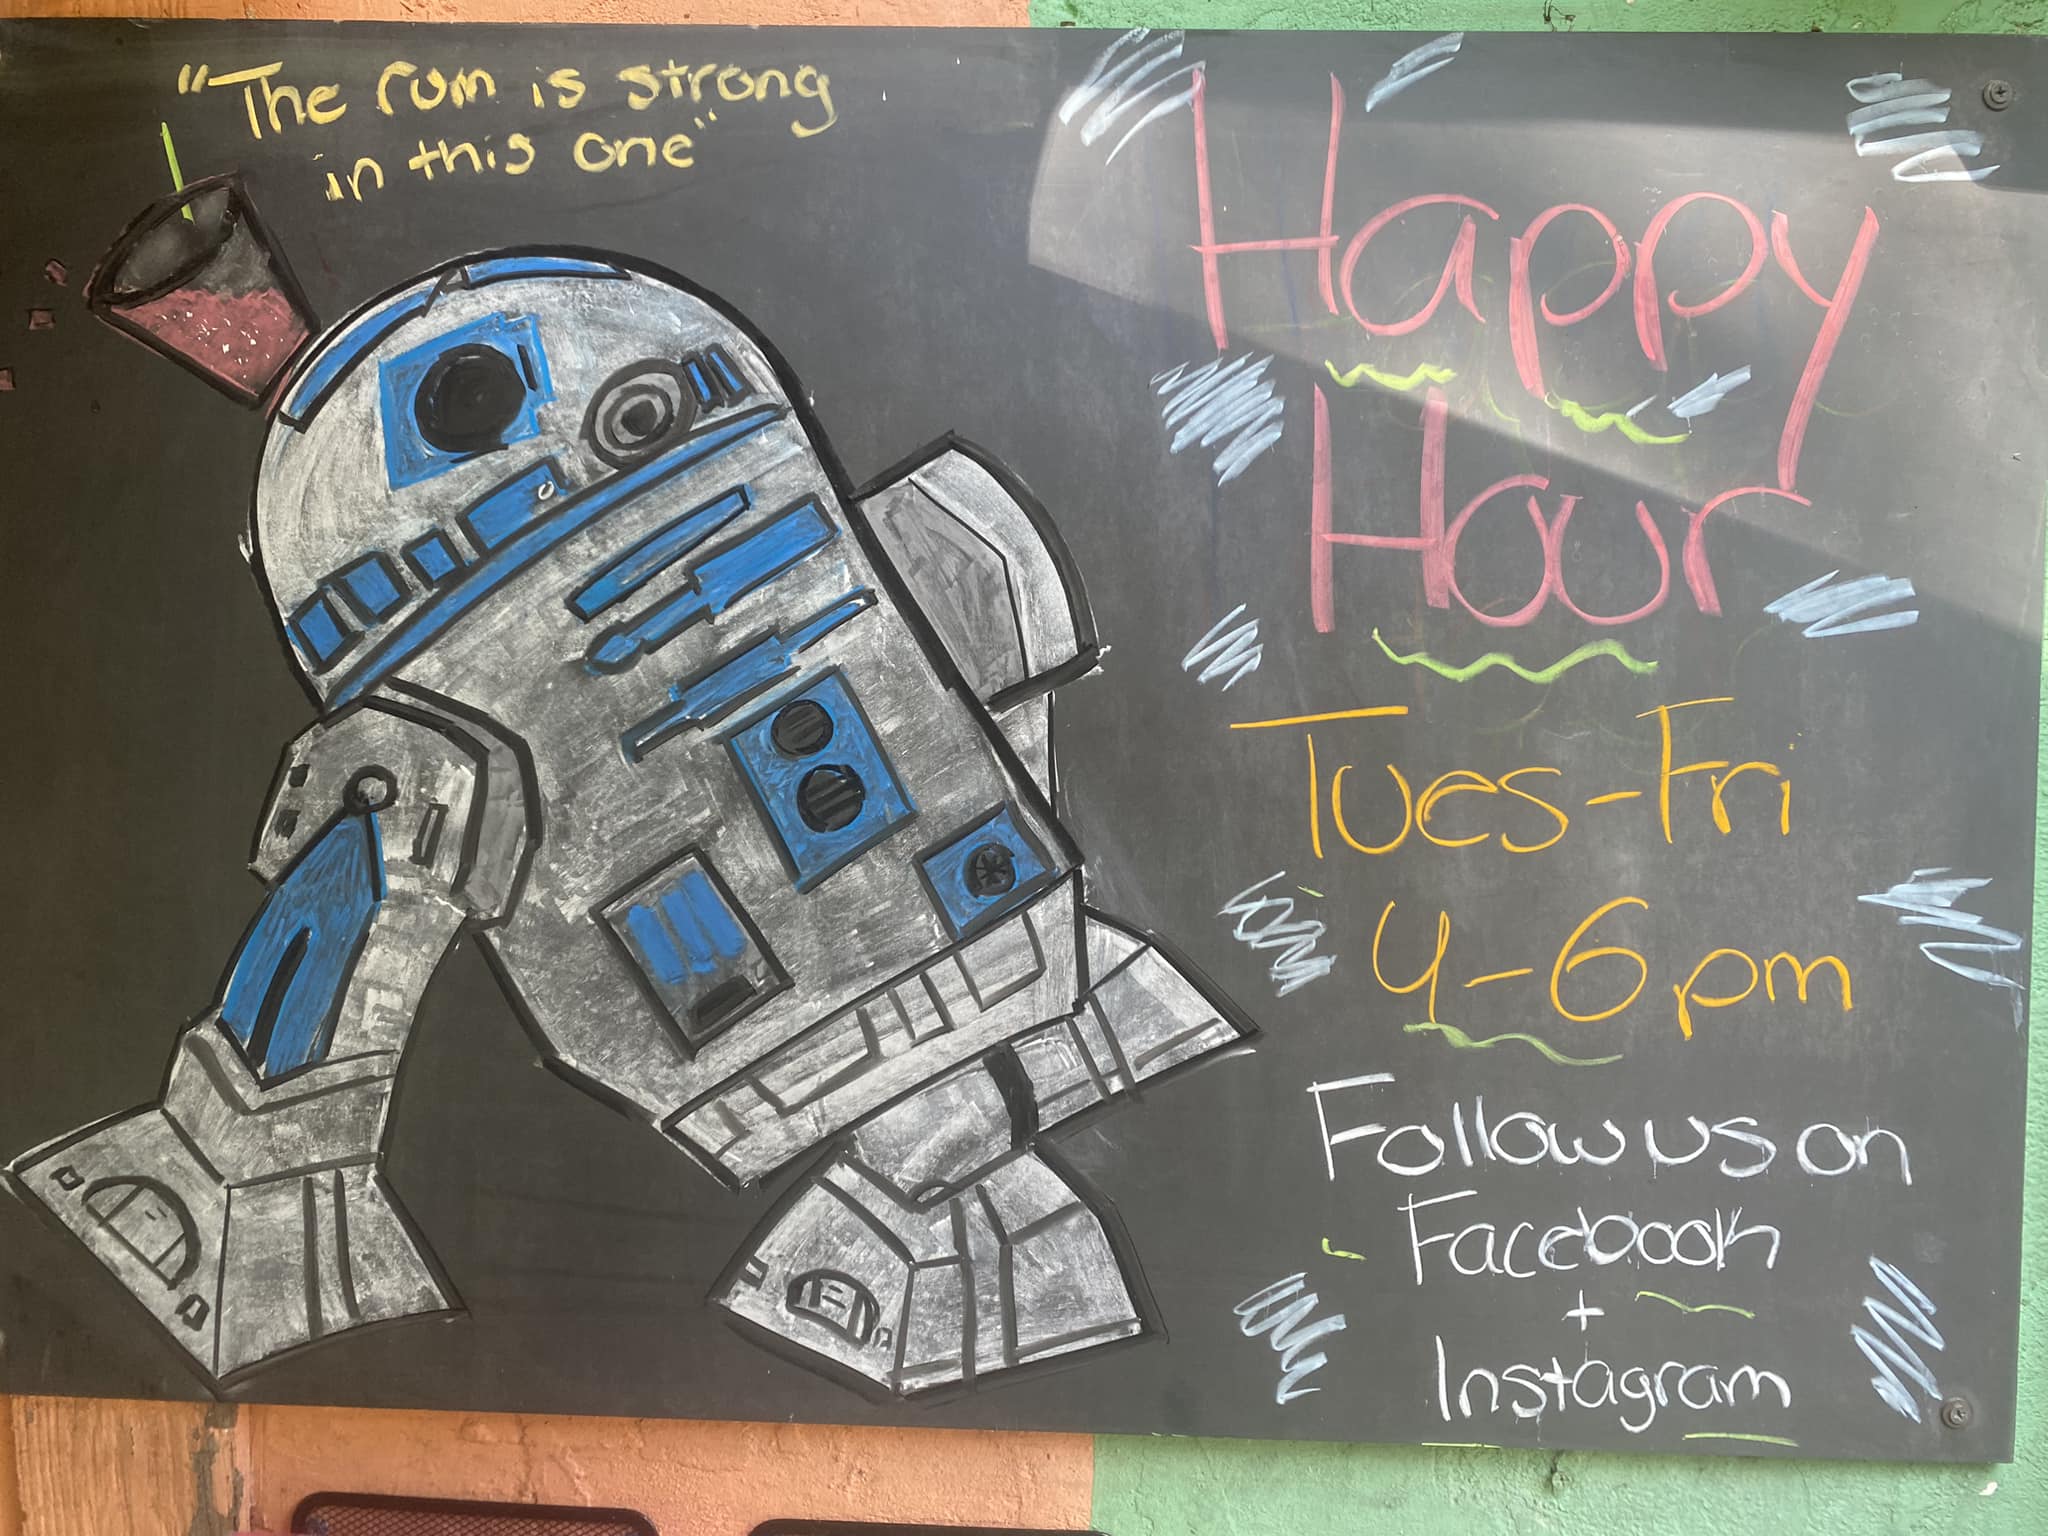 "The rum is strong
in this one"
Happy
Hour
Tues-Fri
4-6pm
Follow us on
Facebook
+
Instagram